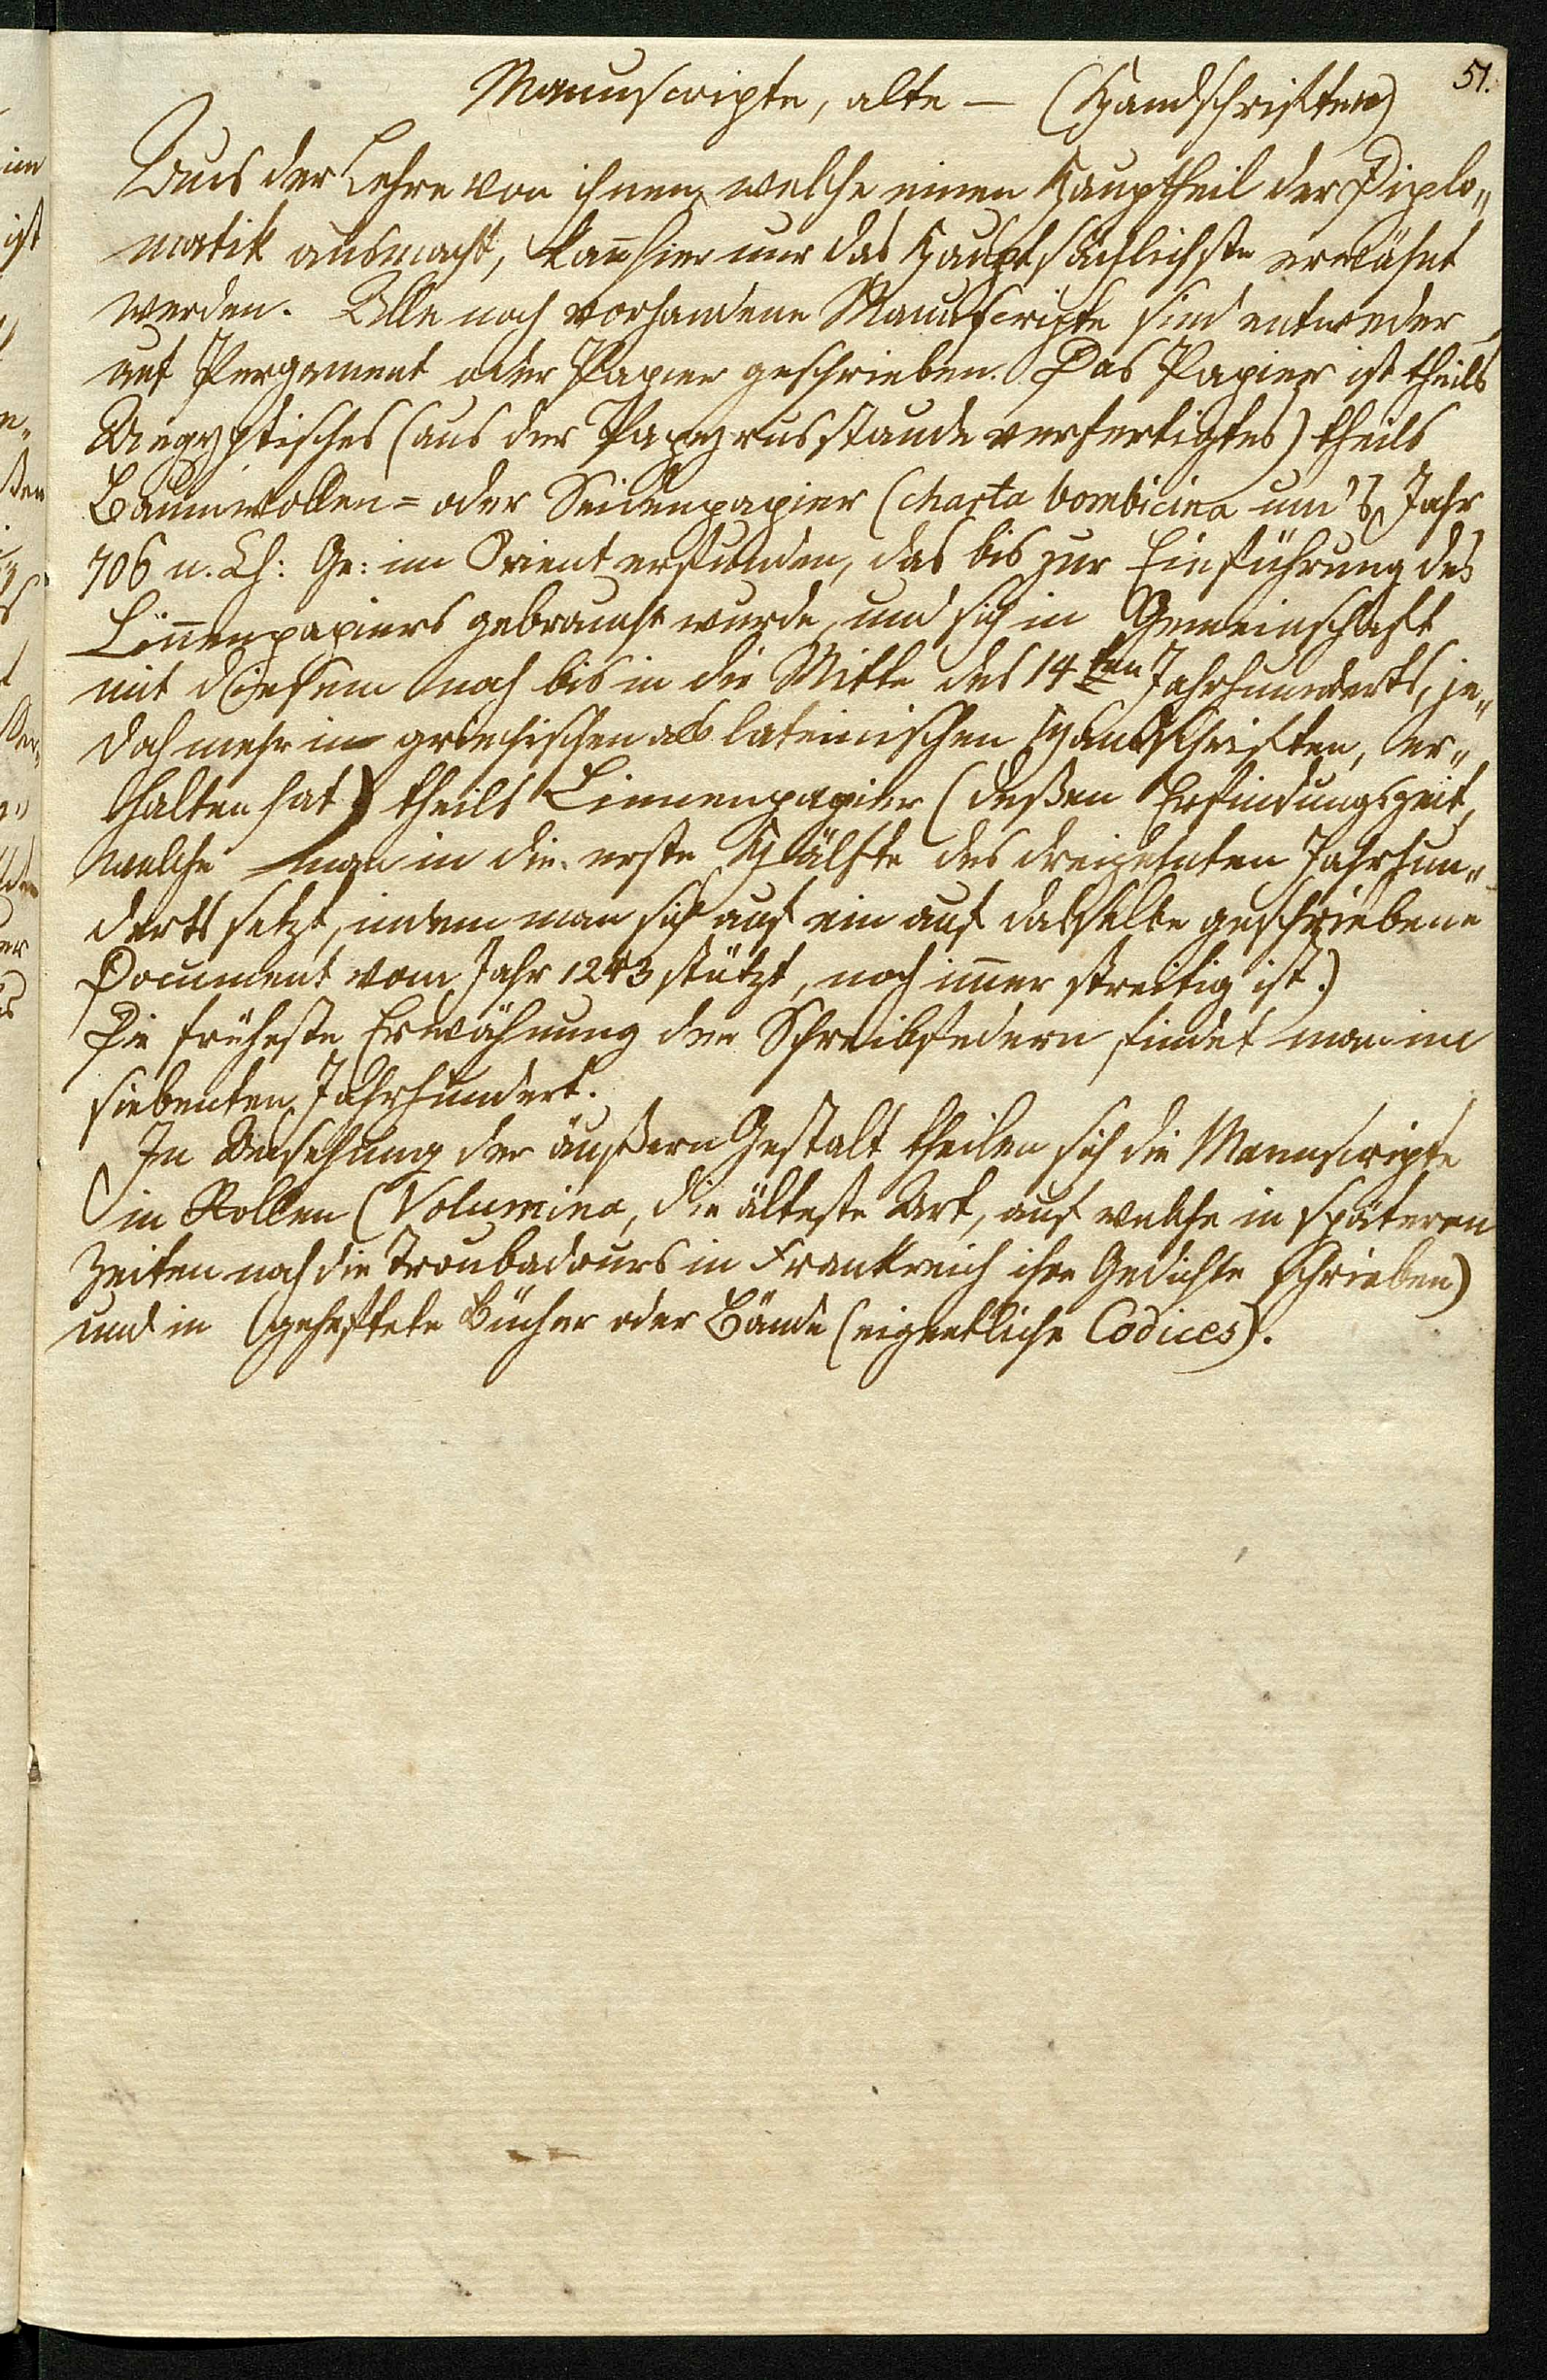 51.
Manuscripte, alte — (Handschriften)
Aus der Lehre von ihnen, welche einen Haupttheil der Diplo„
matik ausmacht, kan̄ hier nur das Hauptsächlichste erwähnt
werden. Alle noch vorhandene Manuscripte sind entweder
auf Pergament oder Papier geschrieben. Das Papier ist theils
Aegyptisches (aus der Papyrusstaude verfertigtes) theils
Baumwollen= oder Seidenpapier (charta bombicina um's Jahr
706 n. Ch: Ge: im Orient erfunden, das bis zur Einführung des
Lin̄enpapiers gebraucht wurde, und sich in Gemeinschaft
mit diesem noch bis in die Mitte des 14ten Jahrhunderts, je„
doch mehr in griechischen als lateinischen Handschriften, er„
halten hat) theils Linnenpapier (deßen Erfindungszeit,
welche man in die erste Hälfte des dreizehnten Jahrhun„
derts setzt, indem man sich auf ein auf dasselbe geschriebene
Document vom Jahr 1243 stützt, noch im̄er streitig ist.)
Die früheste Erwähnung der Schreibfedern findet man im
siebenten Jahrhundert.
In Ansehung der äußern Gestalt theilen sich die Manuscripte
in Rollen (Volumina, die älteste Art, auf welche in späteren
Zeiten noch die Troubadours in Frankreich ihre Gedichte schrieben)
und in geheftete Bücher oder Bände (eigentliche Codices).